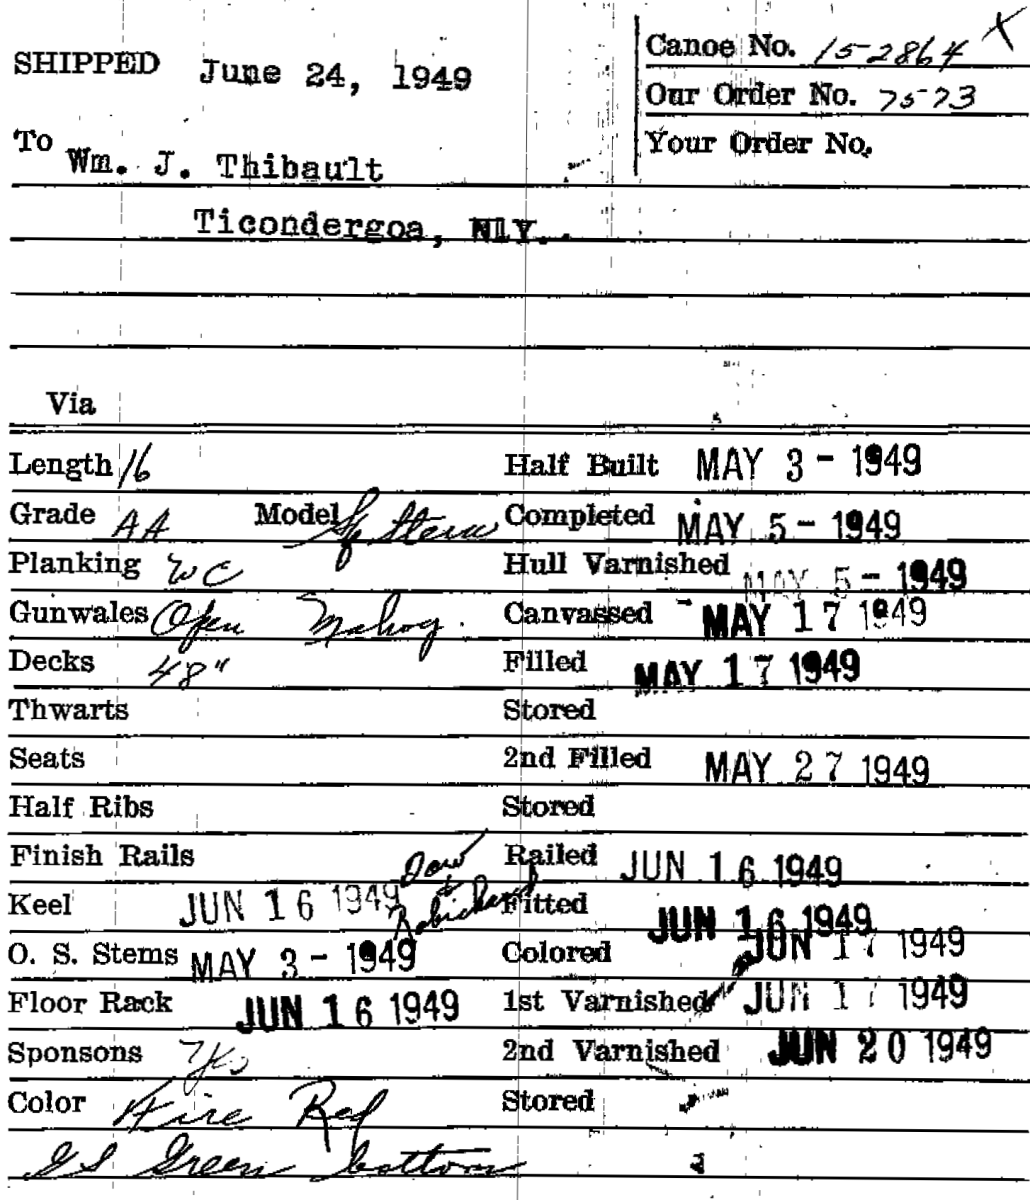 SHIPPED June 24, 1949
Canoe No. 152864 X
Our Order No. 7573
Your Order No.
To Wm. J. Thibault
Ticondergoa, N.Y.
Via
Length 16 Half Built MAY 3 - 1949
Grade AA Model Sp Stern Completed MAY 5 - 1949
Planking WC Hull Varnished MAY 5 - 1949
Gunwales Open Mahog. Canvassed MAY 17 1949
Decks 48" Filled MAY 17 1949
Thwarts Stored
Seats 2nd Filled MAY 27 1949
Half Ribs Stored
Finish Rails Railed JUN 16 1949
Keel JUN 16 1949 Fitted JUN 16 1949
O. S. Stems MAY 3 - 1949 Colored JUN 17 1949
Floor Rack JUN 16 1949 1st Varnished JUN 17 1949
Sponsons 2nd Varnished JUN 20 1949
Color Fire Red Stored
Green bottom